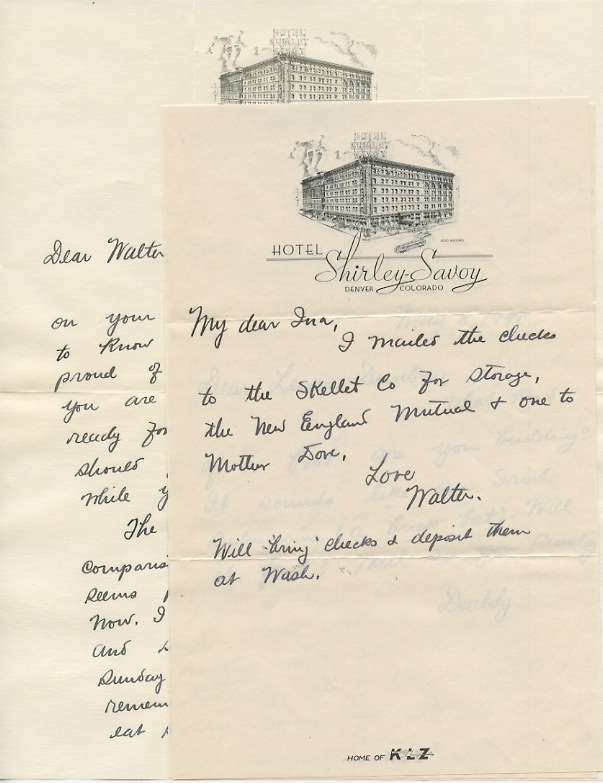 HOTEL
Shirley-Savoy
DENVER COLORADO
My dear Ina,
I mailed the checks
to the Skellet Co for storage,
the New England Mutual & one to
Mother Dove.
Love
Walter.
Will bring checks & deposit them
at Wash.
HOME OF KLZ
Dear Walter
on your
to know
proud of
you are
ready for
should
while y
The
Comparis
seems
Now. I
and
Sunday
remem
eat
Daddy